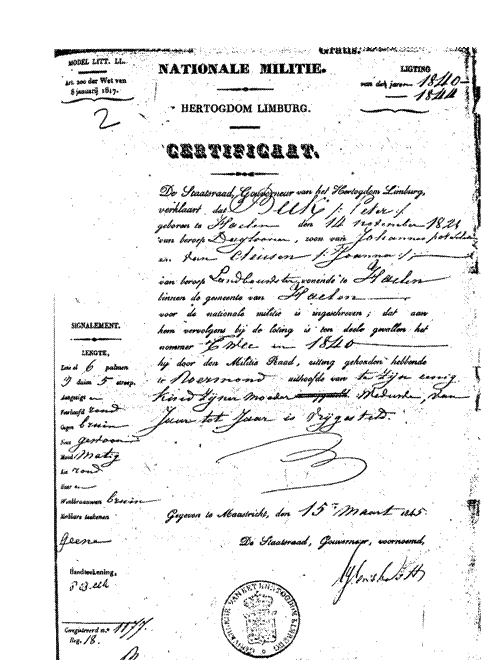 Gratis.
MODEL LITT. LL.
Art. 200 der Wet van
8 januarij 1817.
2
NATIONALE MILITIE.
LIGTING
van de jaren 1840
1844
HERTOGDOM LIMBURG.
CERTIFICAAT.
De Staatsraad, Gouverneur van het Hertogdom Limburg,
verklaart dat Peter
geboren te Haelen den 14 november 182
van beroep zoon van Johannes
en van Joanna
van beroep wonende te Haelen
binnen de gemeente van Haelen
voor de nationale militie is ingeschreven; dat aan
hem vervolgens bij de loting is ten deele gevallen het
nommer Twee in 1840
hij door den Militie Raad, zitting gehouden hebbende
te Roermond uithoofde van te zijn eenig
kind zijner moeder Weduwe, van
Jaar tot Jaar is vrijgesteld.
SIGNALEMENT.
LENGTE,
6 palmen
9 duim 5 streep.
Aangezigt
Voorhoofd rond
Oogen bruin
Neus gewoon
Mond Matig
Kin rond
Haar
Wenkbraauwen bruin
Merkbare teekenen
geene
Gegeven te Maastricht, den 15 Maart 1845
De Staatsraad, Gouverneur, voornoemd,
Handteekening,
Geregistreerd n.° 1177
Reg. 18.